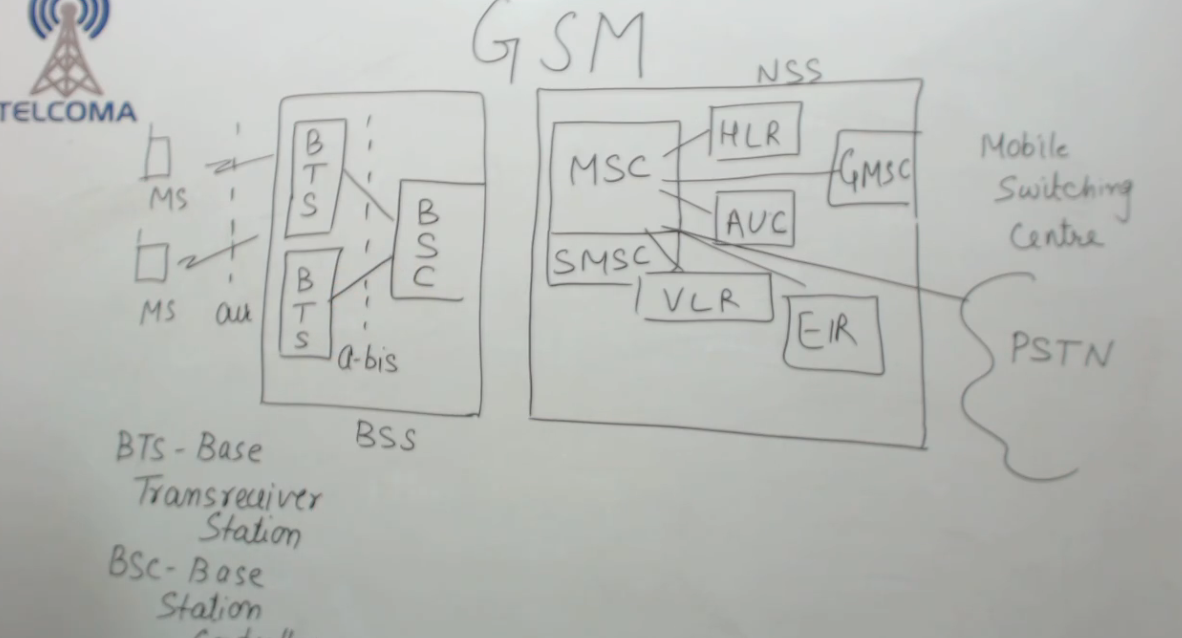 GSM
TELCOMA
NSS
MS
MS
BTS
BTS
BSC
a-bis
BSS
MSC
SMSC
HLR
GMSC
AUC
VLR
EIR
Mobile
Switching
Centre
PSTN
BTS - Base
Transreciver
Station
BSC - Base
Station